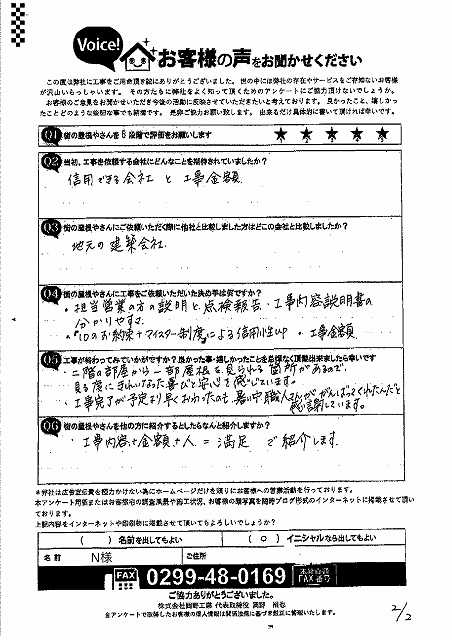 Voice!
お客様の声をお聞かせください
この度は弊社に工事をご用命頂き誠にありがとうございました。世の中には弊社の存在やサービスをご存知ないお客様
が沢山いらっしゃいます。その方たちに弊社をよく知って頂くためのアンケートにご協力頂けないでしょうか。
お客様のご意見をお聞かせいただき今後の活動に反映させていただきたいと考えております。良かったこと、嬉しかっ
たことどのような些細な事でも結構です。是非ご協力お願い致します。出来るだけ具体的に書いて頂ければ幸いです。
Q1 街の屋根やさんを5段階で評価をお願いします ★ ★ ★ ★ ★
Q2 当初、工事を依頼する会社にどんなことを期待されていましたか？
信用できる会社 と 工事金額
Q3 街の屋根やさんにご依頼いただく際に他社と比較しました方はどこの会社と比較しましたか？
地元の建築会社
Q4 街の屋根やさんに工事をご依頼いただいた決め手は何ですか？
・担当営業の方の説明と、点検報告・工事内容説明書の
分かりやすさ
・10のお約束+マイスター制度による信用性UP ・工事金額
Q5 工事が終わってみていかがですか？良かった事・嬉しかったことを忌憚なく頂戴出来ましたら幸いです
・二階の部屋から一部屋根を見られる箇所があるので、
見る度にきれいなった喜びと安心を感じています。
・工事完了が予定より早くおわったのも、暑い中職人さんががんばってくれたんだと
感謝しています。
Q6 街の屋根やさんを他の方に紹介するとしたらなんと紹介しますか？
・工事内容+金額+人 = 満足 ご紹介します。
＊弊社は広告宣伝費を極力かけない為にホームページだけを頼りにお客様への営業活動を行っております。
本アンケート用紙またはお客様宅の調査風景や施工状況、お客様の顔写真を随時ブログ形式のインターネットに掲載させて頂いて
おります。
上記内容をインターネットや印刷物に掲載させて頂いてもよろしいでしょうか？
（　）名前を出してもよい （ ○ ）イニシャルなら出してもよい
名前 N様 ご住所
FAX 0299-48-0169 FAX番号
ご協力ありがとうございました。
株式会社岡野工業 代表取締役 岡野
当アンケートで取得したお客様の個人情報は関係法規に基づき厳正に管理いたします。
2/2